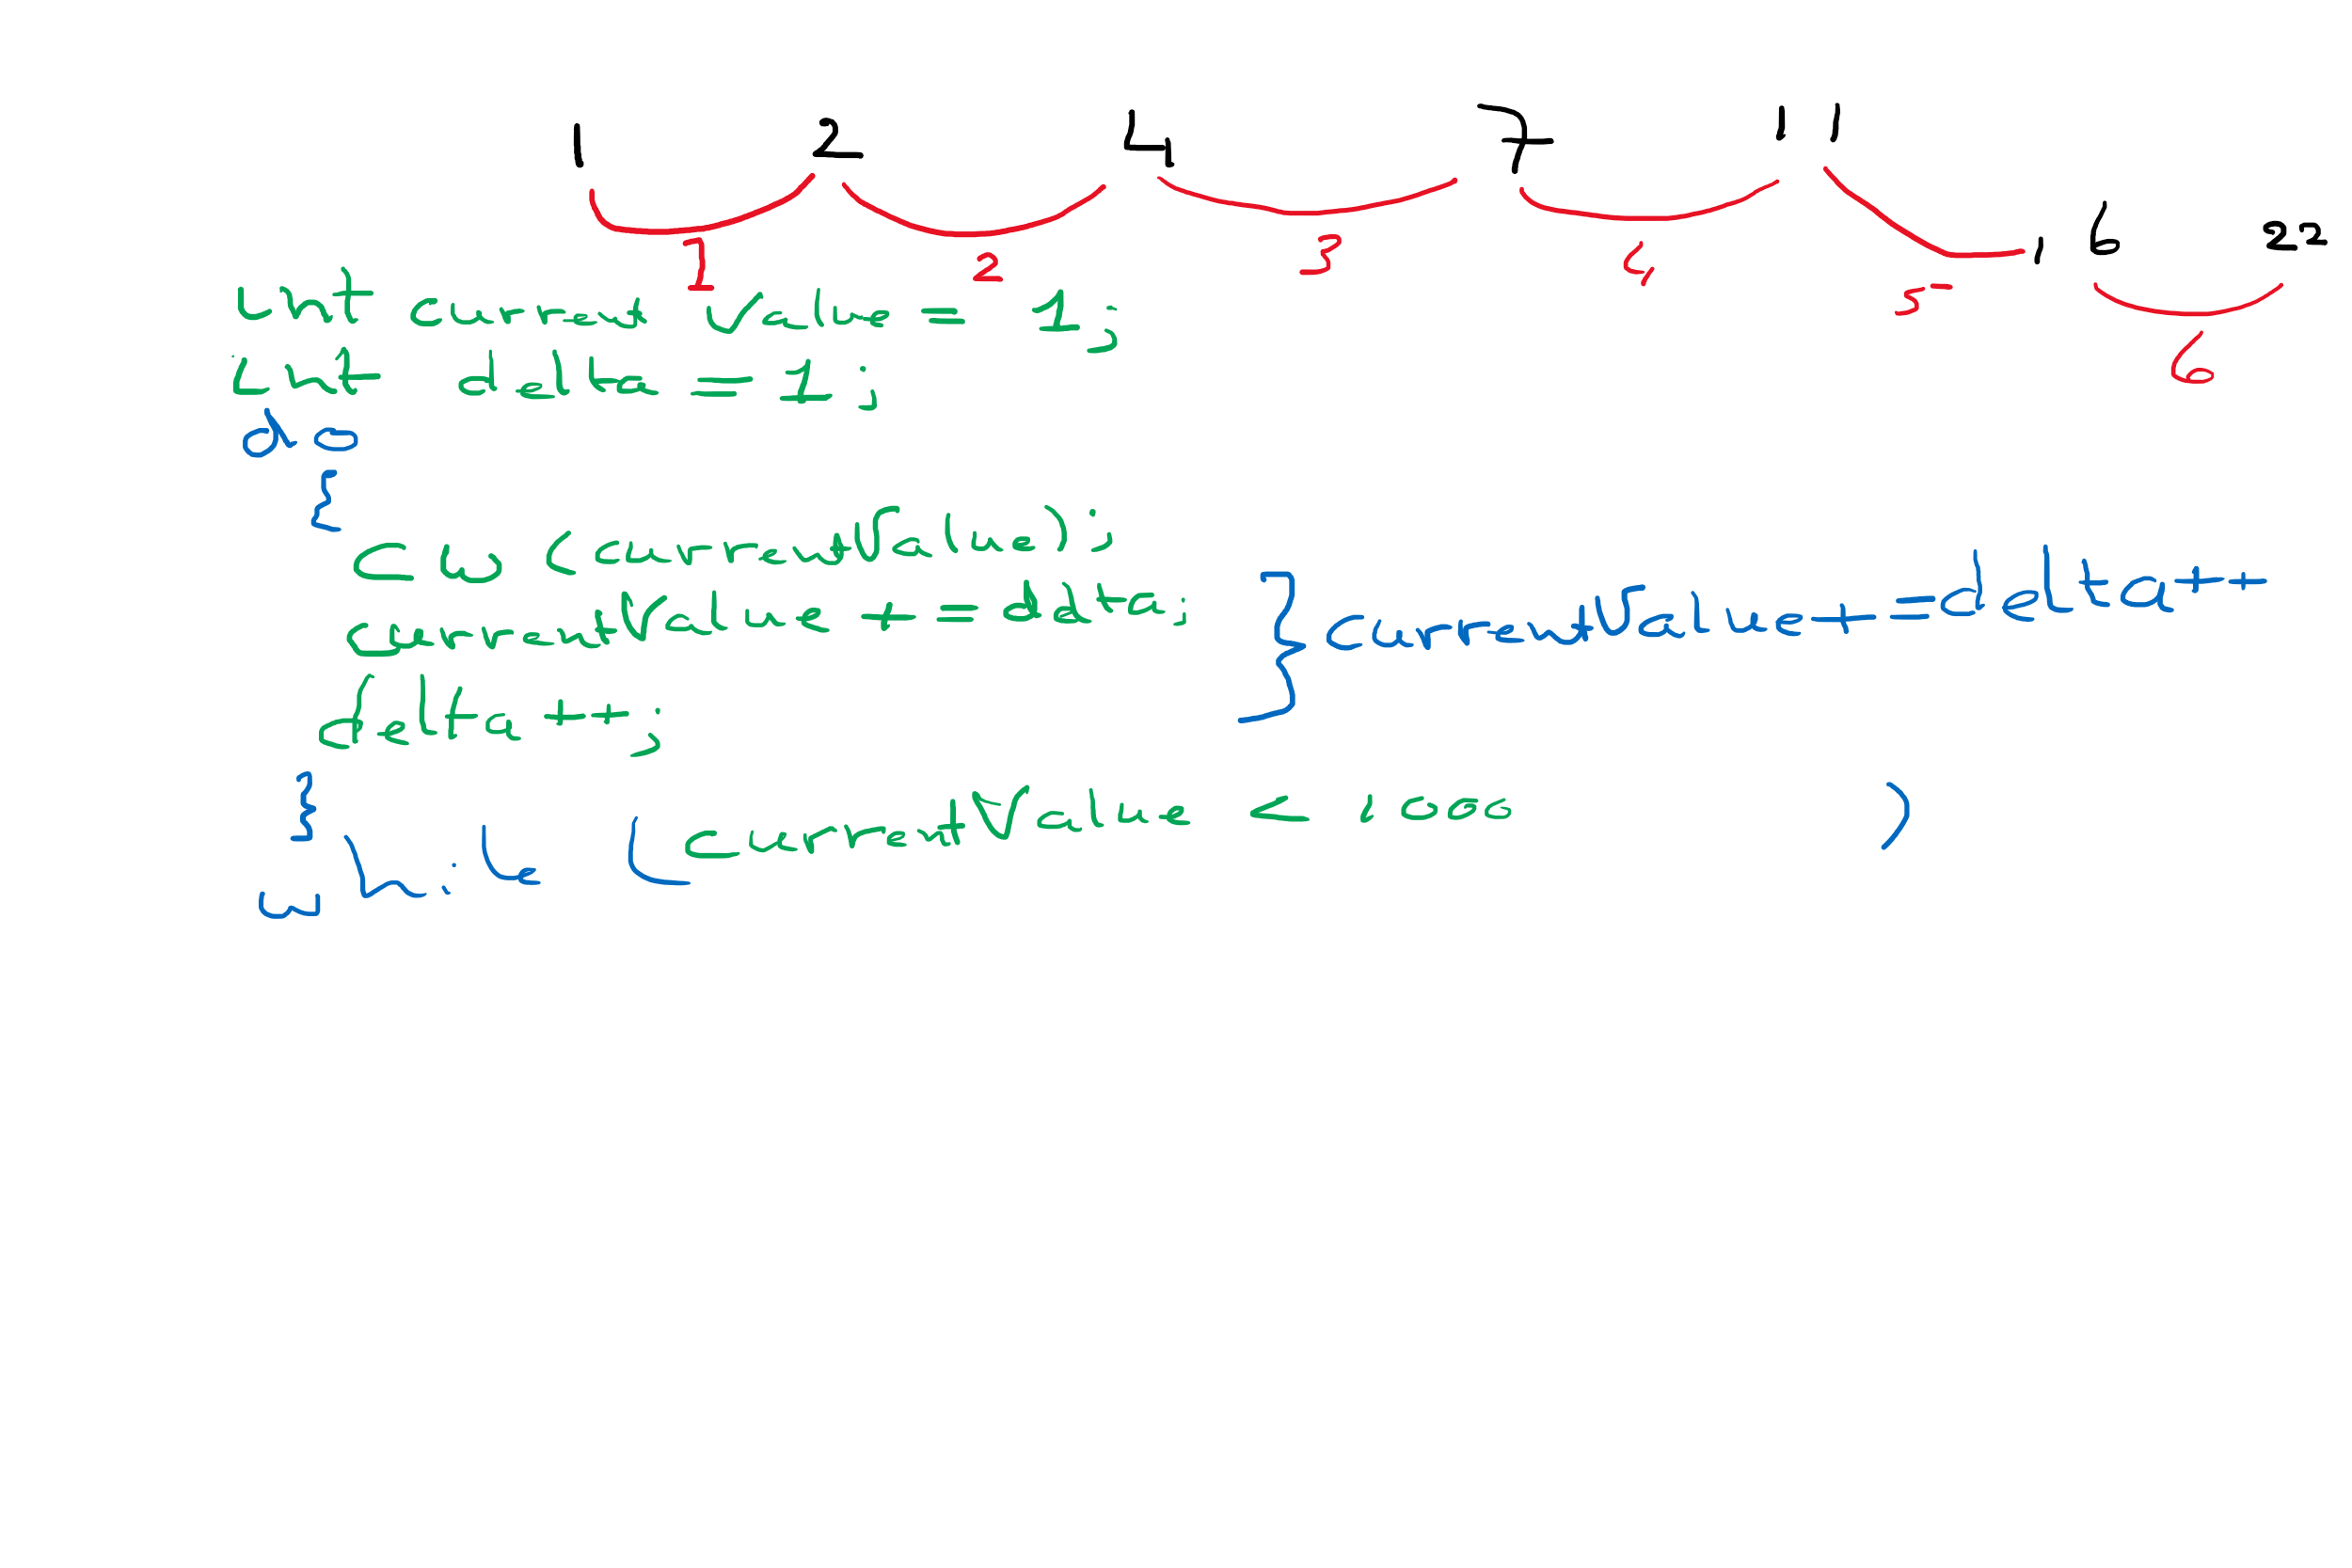 1 2 4 7 11 16 22
1 2 3 4 5 6
int current Value = 1;
int delta = 1;
do
{
CW (currentValue);
currentValue += delta;
delta++;
} currentValue += delta++
}
while (currentValue < 1000 )